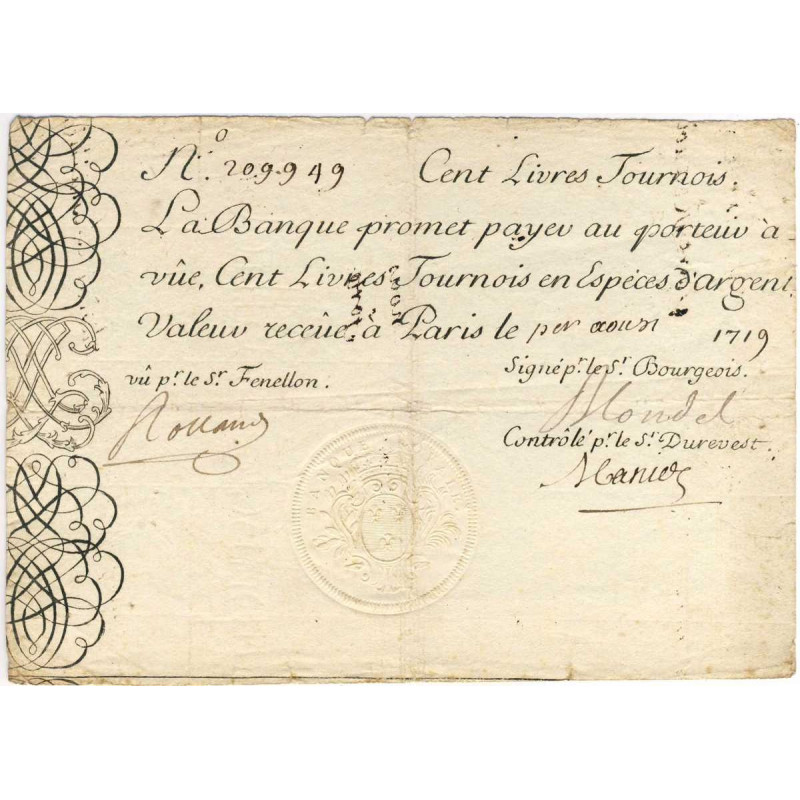 N.o 209949 Cent Livres Tournois.
La Banque promet payer au porteur à
vûe, Cent Livres Tournois en Espéces d'argent,
Valeur receûe, à Paris le per aoust 1719
vû pr. le Sr. Fenellon.
Signé pr. le Sr. Bourgeois.
Contrôlé pr. le Sr. Durevest.
BANQUE